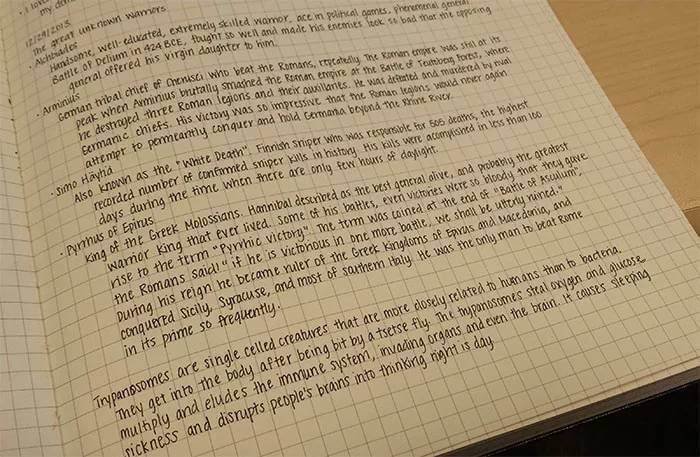 my
12/29/2013
The great unknown warriors.
· Alcibiades
Handsome, well-educated, extremely skilled warrior, ace in political games, phenomenal general
Battle of Delium in 424 BCE, fought so well and made his enemies look so bad that the opposing
general offered his virgin daughter to him.
· Arminius
German tribal chief of Cherusci who beat the Romans, repeatedly. The Roman empire was still at its
peak when Arminius brutally smashed the Roman empire at the Battle of Teutoberg Forest, where
he destroyed three Roman legions and their auxiliaries. He was defeated and murdered by rival
Germanic chiefs. His victory was so impressive that the Roman legions would never again
attempt to permeantly conquer and hold Germania beyond the Rhine River.
· Simo Häyhä
Also known as the "White Death". Finnish sniper who was responsible for 505 deaths, the highest
recorded number of confirmed sniper kills in history. His kills were acomplished in less than 100
days during the time when there are only few hours of daylight.
· Pyrrhus of Epirus
King of the Greek Molossians. Hannibal described as the best general alive, and probably the greatest
warrior King that ever lived. Some of his battles, even victories were so bloody that they gave
rise to the term "Pyrrhic victory". The term was coined at the end of "Battle of Asculum",
the Romans said: "if he is victorious in one more battle, we shall be utterly ruined."
During his reign he became ruler of the Greek Kingdoms of Epirus and Macedonia, and
conquered Sicily, Syracuse, and most of southern Italy. He was the only man to beat Rome
in its prime so frequently.
Trypanosomes are single celled creatures that are more closely related to humans than to bacteria.
They get into the body after being bit by a tsetse fly. The trypanosomes steal oxygen and glucose
multiply and eludes the immune system, invading organs and even the brain. It causes sleeping
sickness and disrupts people's brains into thinking night is day.